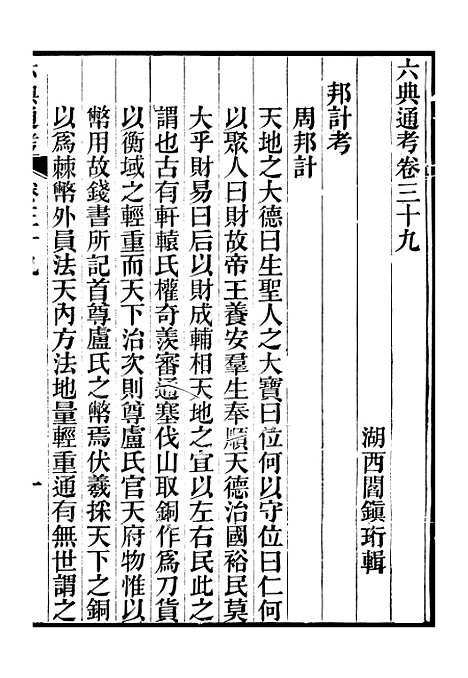 六典通考卷三十九
湖西閻鎭珩輯
邦計考
周邦計
天地之大德曰生聖人之大寶曰位何以守位曰仁何
以聚人曰財故帝王養安羣生奉順天德治國裕民莫
大乎財易曰后以財成輔相天地之宜以左右民此之
謂也古有軒轅氏權奇羨審通塞伐山取銅作爲刀貨
以衡域之輕重而天下治次則尊盧氏官天府物惟以
幣用故錢書所記首尊盧氏之幣焉伏羲採天下之銅
以爲棘幣外員法天內方法地量輕重通有無世謂之
六典通考
卷三十九
一